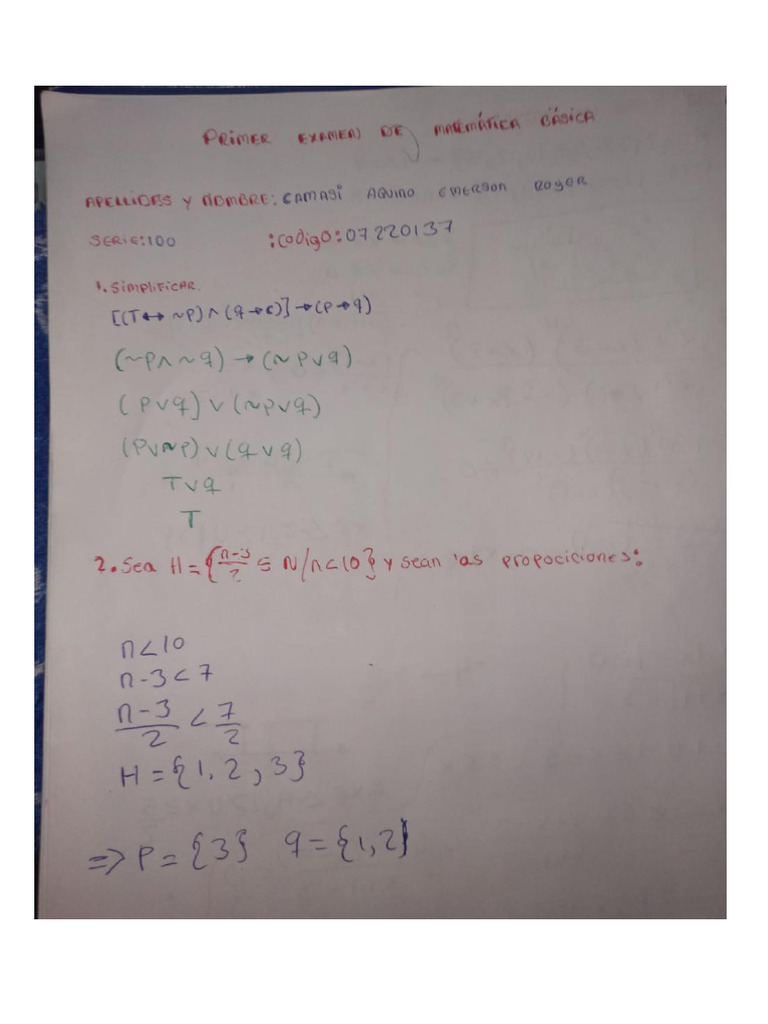 PRIMER EXAMEN DE MATEMÁTICA BÁSICA
APELLIDOS Y NOMBRE: CAMASI AQUINO EMERSON ROGER
SERIE:100 :CODIGO:07220137
1. SIMPLIFICAR.
[(T↔~P)∧(q→c)]→(P→q)
(~P∧~q)→(~P∨q)
(P∨q)∨(~P∨q)
(P∨~P)∨(q∨q)
T∨q
T
2. Sea H={n-3/2 ∈ N/n<10} y sean las propociciones:
n<10
n-3<7
n-3/2 < 7/2
H={1,2,3}
=> P={3} q={1,2}